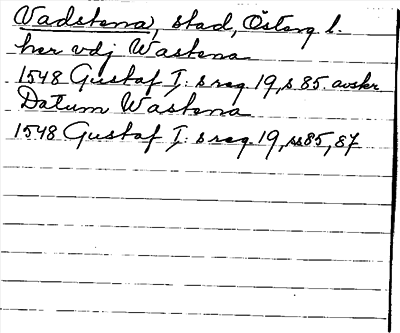 Vadstena, stad, Österg l.
her vdj Wastena
1548 Gustaf I: s reg. 19, s 85. avskr
Datum Wastena
1548 Gustaf I: s reg. 19, ss 85, 87